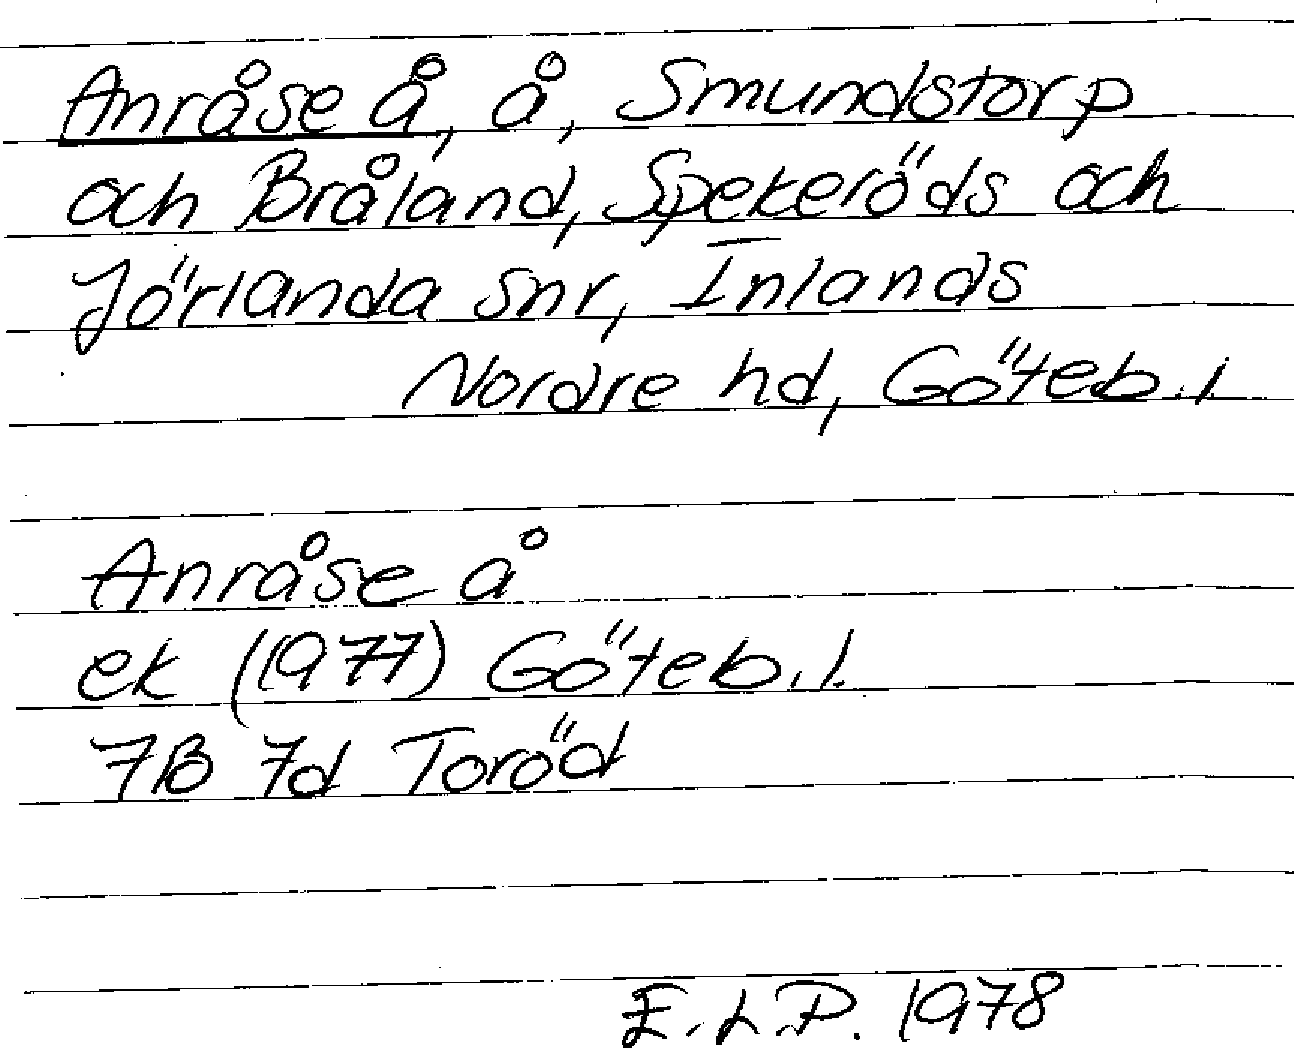 Anråse å, å, Smundstorp
och Bråland, Spekeröds och
Jörlanda snr, Inlands
Nordre hd, Göteb. l.
Anråse å
ek (1977) Göteb. l.
7B 7d Toröd
E.L.P. 1978